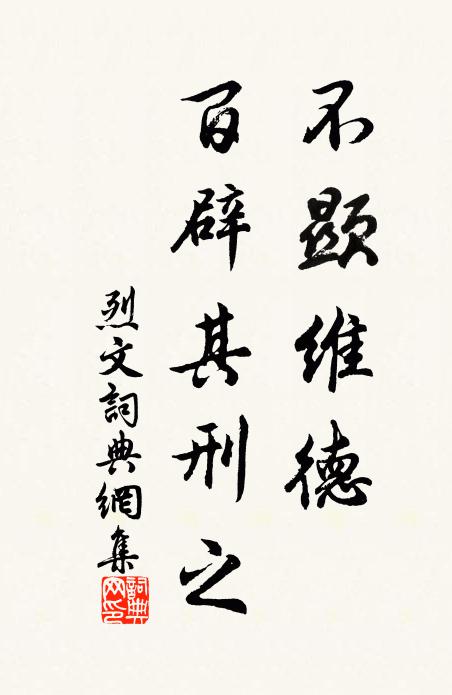 不顯維德
百辟其刑之
烈文詞典網集
詞典网印